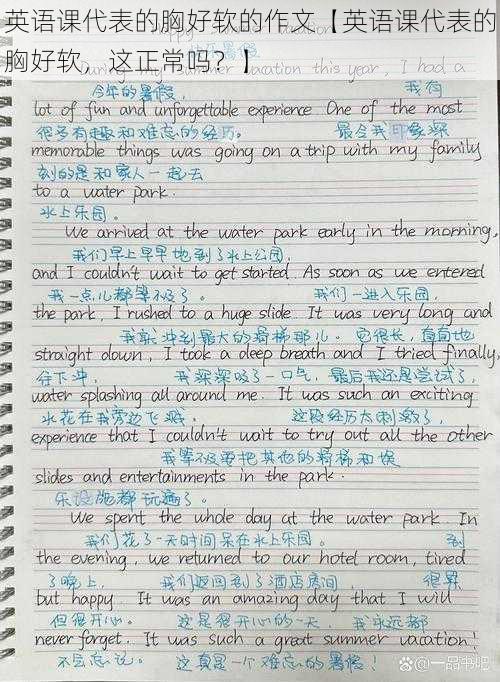 英语课代表的胸好软的作文【英语课代表的胸好软，这正常吗？】
summer vacation this year, I had a
今年的暑假， 我有
lot of fun and unforgettable experience One of the most
很多有趣和难忘的经历。 最令我印象深
memorable things was going on a trip with my family
刻的是和家人一起去
to a water park.
水上乐园。
We arrived at the water park early in the morning,
我们早上早早地到了水上公园，
and I couldn't wait to get started. As soon as we entered
我一点儿都等不及了。 我们一进入乐园，
the park, I rushed to a huge slide. It was very long and
我就冲到最大的滑梯那儿。 它很长，直直地
straight down, I took a deep breath and I tried finally,
往下冲， 我深深吸了一口气，最后我还是尝试了，
water splashing all around me. It was such an exciting
水花在我旁边飞溅。 这段经历太刺激了，
experience that I couldn't wait to try out all the other
我等不及要把其他的滑梯和娱
slides and entertainments in the park.
乐设施都玩遍了。
We spent the whole day at the water park. In
我们花了一天时间呆在水上乐园。 到
the evening, we returned to our hotel room, tired
了晚上， 我们返回到了酒店房间， 很累
but happy. It was an amazing day that I will
但很开心。 这是很开心的一天，我永远都
never forget. It was such a great summer vacation!
不会忘记。 这真是一个难忘的暑假！
一品书吧